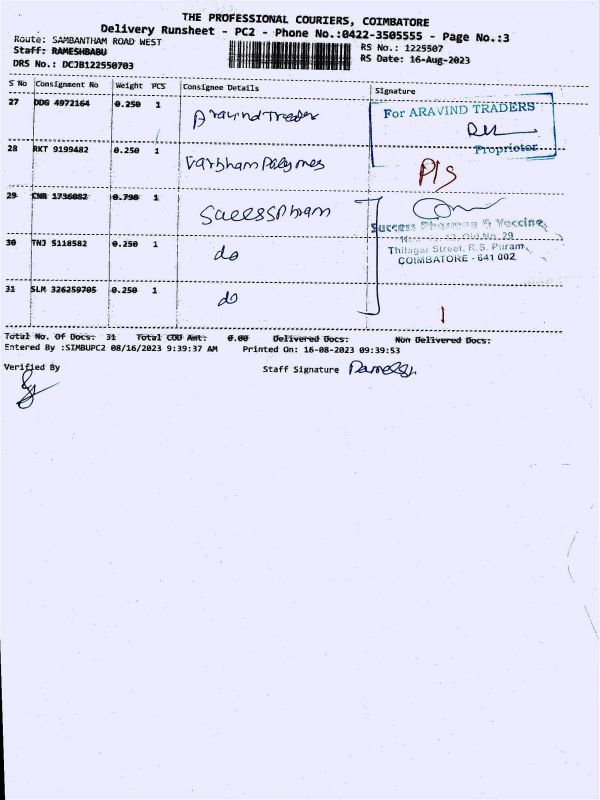 THE PROFESSIONAL COURIERS, COIMBATORE
Delivery Runsheet - PC2 - Phone No.:0422-3505555 - Page No.:3
Route: SAMBANTHAM ROAD WEST
Staff: RAMESHBABU
DRS No.: DCJB122550703
RS No.: 1225507
RS Date: 16-Aug-2023
S No Consignment No Weight PCS Consignee Details Signature
27 DDG 4972164 0.250 1 Aravind Trader
For ARAVIND TRADERS
Proprietor
28 RKT 9199482 0.250 1 Varbham Polymes
P/S
29 CNR 1736082 0.790 1 SuccessPharm
Success Pharma & Vaccine
Old No. 29
Thilagar Street, R.S. Puram,
COIMBATORE - 641 002
30 TNJ 5118582 0.250 1 do
31 SLM 326259705 0.250 1 do
Total No. Of Docs: 31 Total COD Amt: 0.00 Delivered Docs: Non Delivered Docs:
Entered By :SIMBUPC2 08/16/2023 9:39:37 AM Printed On: 16-08-2023 09:39:53
Verified By
Staff Signature